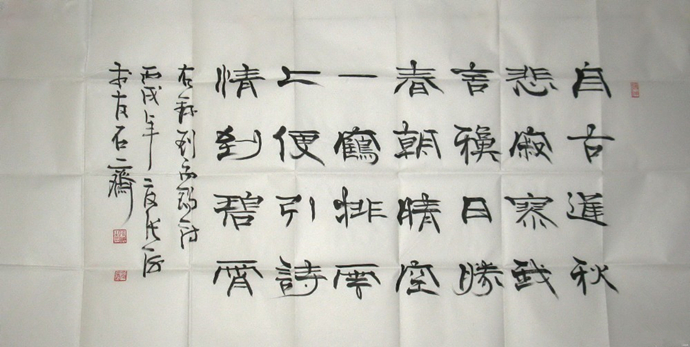 自古逢秋
悲寂寥我
言秋日勝
春朝晴空
一鶴排雲
上便引詩
情到碧霄
右錄劉禹錫詩
丙戌年
石齋